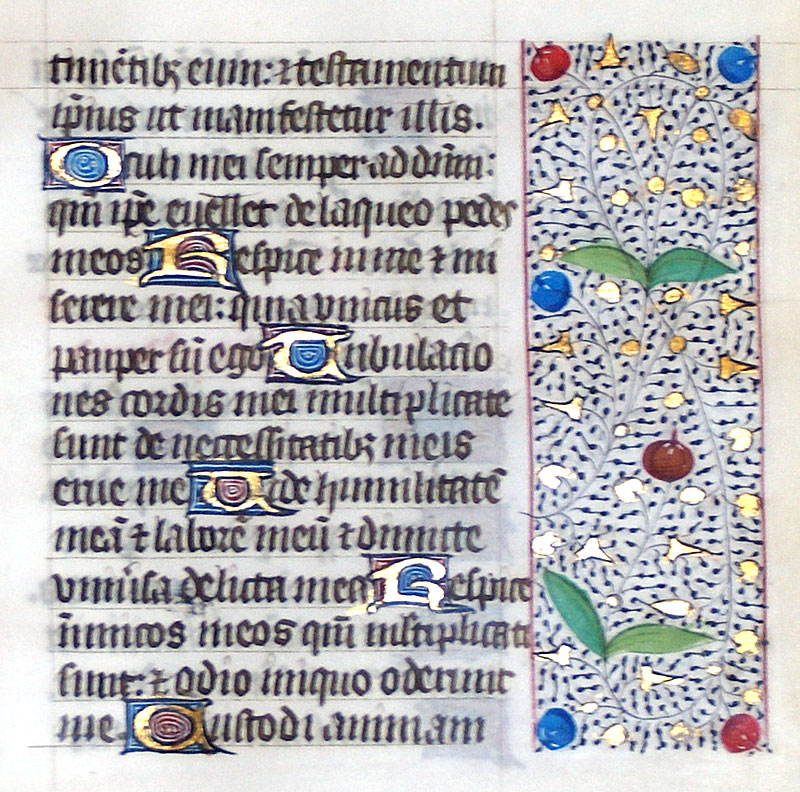 timẽtibꝫ eum: ⁊ testamentum
ip̃ius ut manifestetur illis.
Oculi mei semper ad dñm:
qm̃ ip̃e euellet de laqueo pedes
meos Respice in me ⁊ mi
serere mei: quia vnicus et
pauper sũ ego Tribulatio
nes cordis mei multiplicate
sunt de necessitatibꝫ meis
erue me Uide humilitatẽ
meã ⁊ laborẽ meũ ⁊ dimitte
vniuˀsa delicta mea Respice
inimicos meos qm̃ multiplicati
sunt: ⁊ odio iniquo oderunt
me Custodi animam